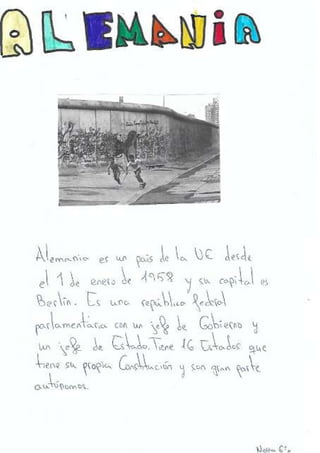 ALEMANIA
Alemania es un país de la UE desde
el 1 de enero de 1958 y su capital es
Berlín. Es una república federal
parlamentaria con un jefe de Gobierno y
un jefe de Estado. Tiene 16 Estados que
tiene su propia Constitución y son gran parte
autónomos.
6º